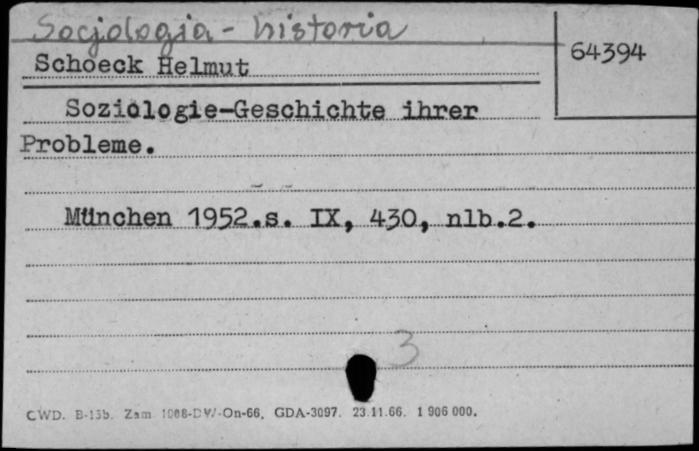 Socjologia - historia
64394
Schoeck Helmut
Soziologie-Geschichte ihrer
Probleme.
München 1952.s. IX, 430, nlb.2.
3
CWD. B-15b. Zam. 1068-DW/-On-66. GDA-3097. 23.11.66. 1 906 000.